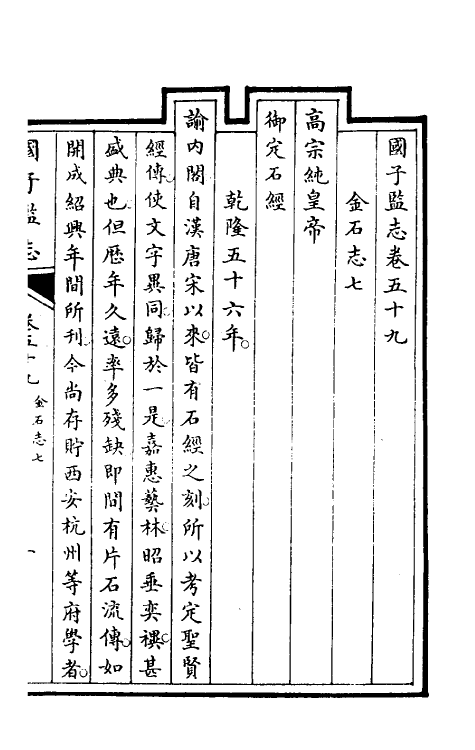 國子監志卷五十九
金石志七
高宗純皇帝
御定石經
乾隆五十六年。
諭內閣自漢唐宋以來。皆有石經之刻。所以考定聖賢
經傳。使文字異同。歸於一是。嘉惠藝林。昭垂奕禩。甚
盛典也。但歷年久遠。率多殘缺即間有片石流傳。如
開成紹興年間所刊。今尚存貯西安杭州等府學者。
國子監志 卷五十九 金石志七 一